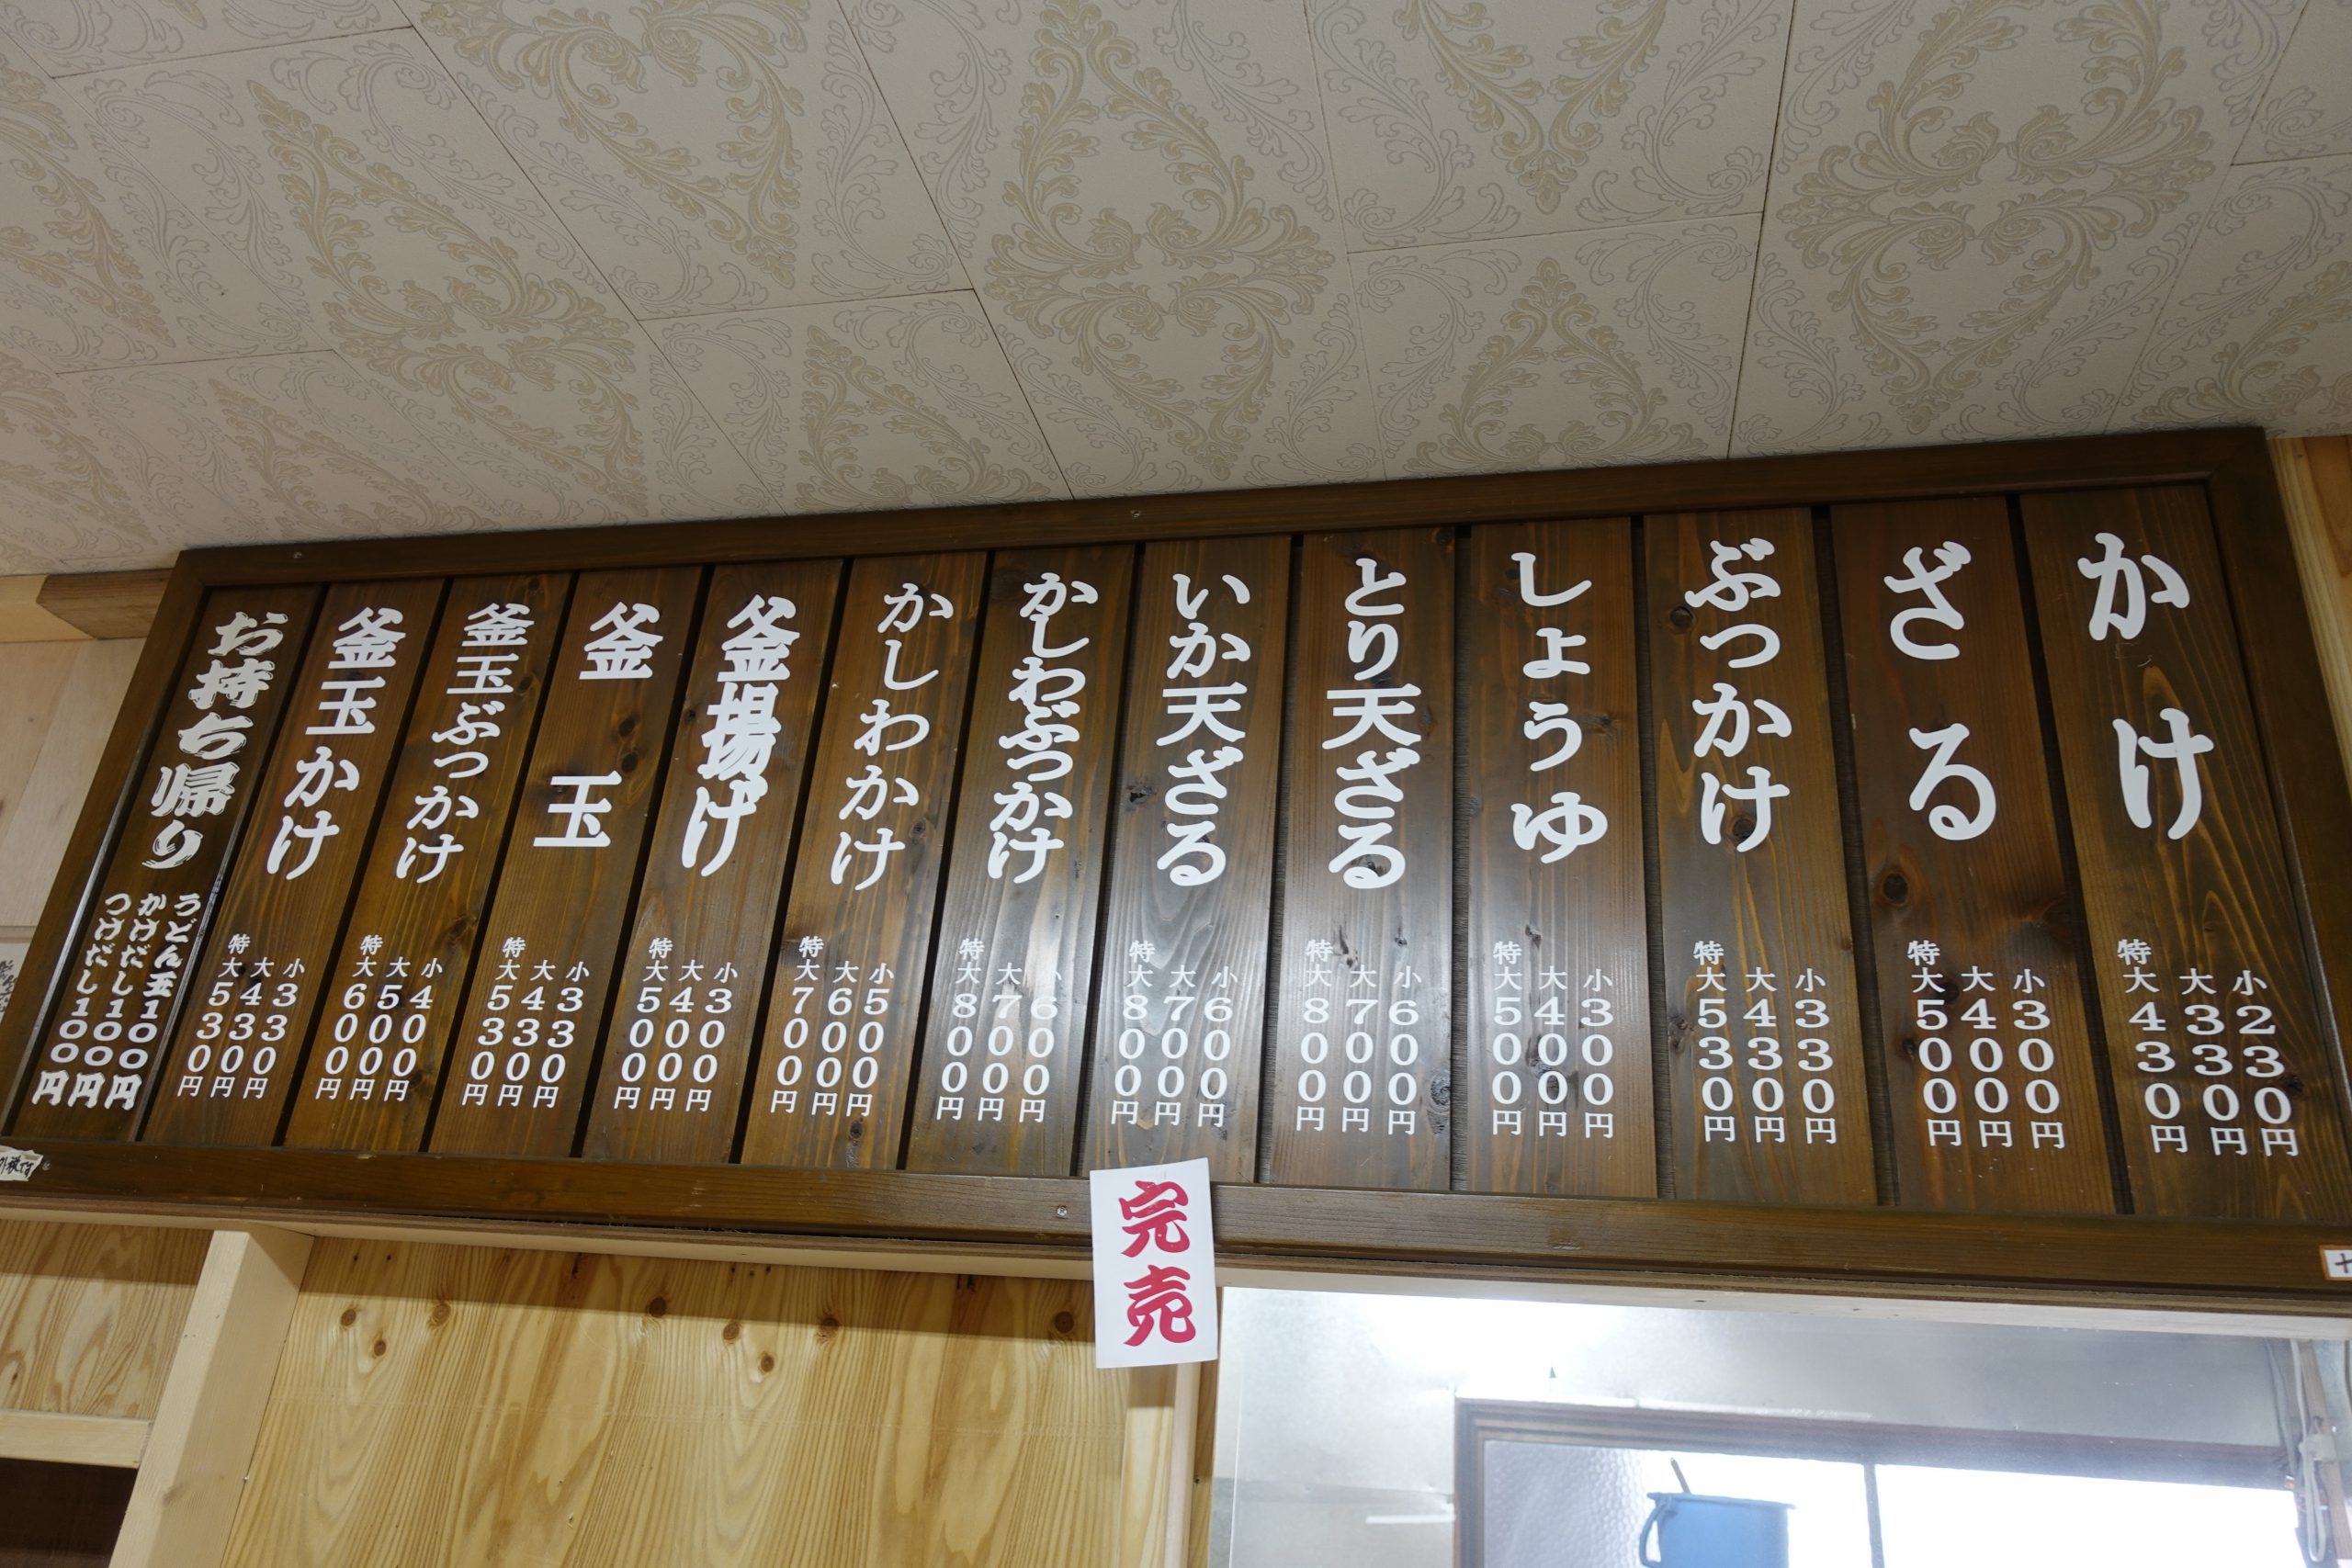 かけ
小230円
大330円
特大430円
ざる
小300円
大400円
特大500円
ぶっかけ
小330円
大430円
特大530円
しょうゆ
小300円
大400円
特大500円
とり天ざる
小600円
大700円
特大800円
いか天ざる
小600円
大700円
特大800円
かしわぶっかけ
小600円
大700円
特大800円
かしわかけ
小500円
大600円
特大700円
釜揚げ
小300円
大400円
特大500円
釜玉
小330円
大430円
特大530円
釜玉ぶっかけ
小400円
大500円
特大600円
釜玉かけ
小330円
大430円
特大530円
お持ち帰り
うどん玉100円
かけだし100円
つけだし100円
完売